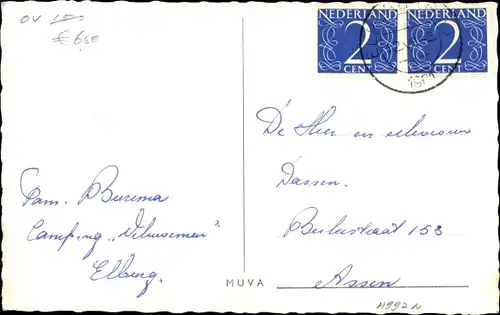 OV 15=
€ 6,50
NEDERLAND
2
CENT
NEDERLAND
2
CENT
De Heer en Mevrouw
Dassen.
Beilerstraat 153
Assen
Fam. Buzema
Camping
Elburg.
MUVA
H992N